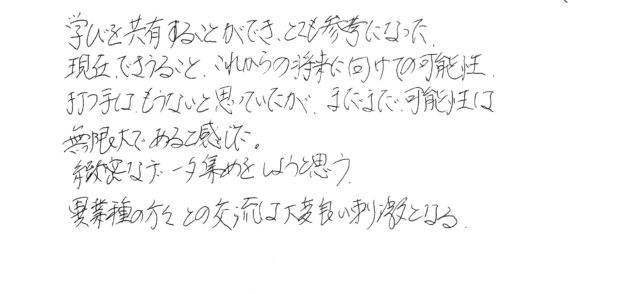 学びを共有することができ、とても参考になった.
現在、できうること、これからの将来に向けての可能性.
打つ手は、もうないと思っていたが、まだまだ、可能性は
無限大であると感じた。
緻密なデータ集めをしようと思う.
異業種の方々との交流は大変良い刺激となる.